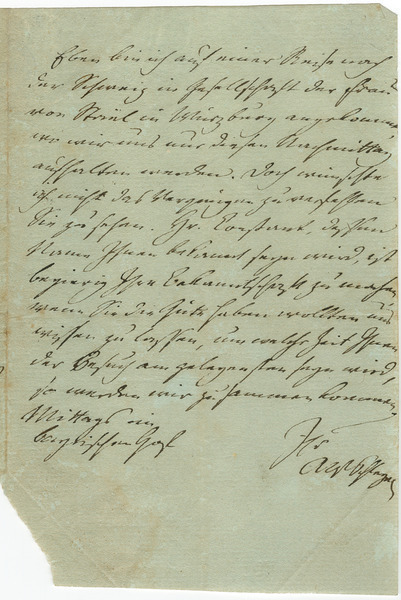 Eben bin ich auf einer Reise nach
der Schweiz in Gesellschaft der Frau
von Stael in Würzburg angekommen
wo wir uns nur diesen Nachmittag
aufhalten werden. Doch wünschte
ich nicht das Vergnügen zu verfehlen
Sie zu sehen. Hr. Constant, dessen
Name Ihnen bekannt seyn wird, ist
begierig Ihre Bekanntschaft zu machen
wenn Sie die Güte haben wollten uns
wissen zu lassen, um welche Zeit Ihnen
der Besuch am gelegensten seyn wird,
so werden wir zusammen kommen.
Mittags im
Bayrischen Hof
Ihr
AWSchlegel